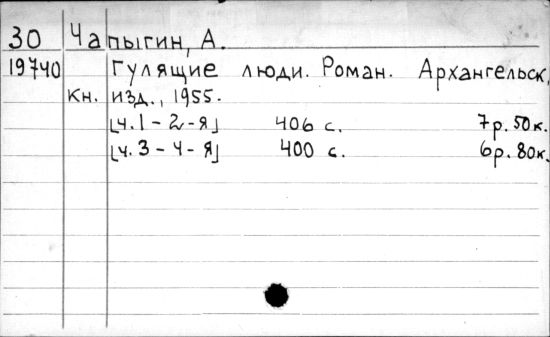 30 Чапыгин, А.
19740 Гулящие люди. Роман. Архангельск,
Кн. изд., 1955.
[ч. 1 - 2 - я] 406 с. 7р. 50к.
[ч. 3 - 4 - я] 400 с. 6р. 80к.